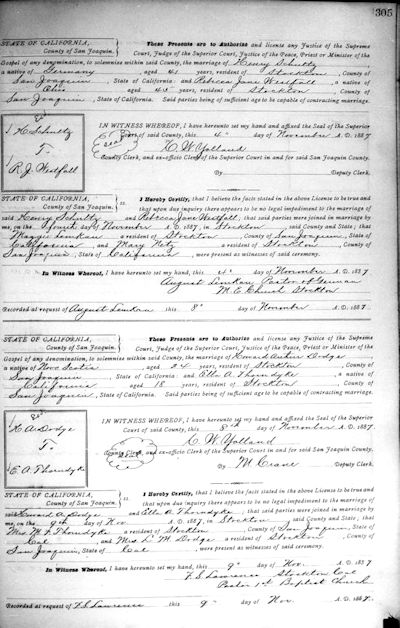 305
STATE OF CALIFORNIA,
County of San Joaquin.
These Presents are to Authorize and license any Justice of the Supreme
Court, Judge of the Superior Court, Justice of the Peace, Priest or Minister of the
Gospel of any denomination, to solemnize within said County, the marriage of Henry Schultz
a native of Germany, aged 41 years, resident of Stockton, County of
San Joaquin, State of California and Rebecca Jane Westfall, a native of
Ohio, aged years, resident of Stockton, County of
San Joaquin, State of California. Said parties being of sufficient age to be capable of contracting marriage.
H. Schultz
To
R. J. Westfall
IN WITNESS WHEREOF, I have hereunto set my hand and affixed the Seal of the Superior
Court of said County, this 4th day of November A. D. 1887
Seal
C. W. Yolland
County Clerk, and ex-officio Clerk of the Superior Court in and for said San Joaquin County.
By Deputy Clerk.
STATE OF CALIFORNIA,
County of San Joaquin.
ss.
I Hereby Certify, that I believe the facts stated in the above License to be true and
that upon due inquiry there appears to be no legal impediment to the marriage of
said Henry Schultz and Rebecca Jane Westfall; that said parties were joined in marriage by
me, on the fourth day of November A. D. 1887, in Stockton, said County and State; that
Maggie Lemkau a resident of Stockton, County of San Joaquin, State of
California and Mary Metz a resident of Stockton, County of
San Joaquin, State of California, were present as witnesses of said ceremony.
In Witness Whereof, I have hereunto set my hand, this 4th day of November A. D. 1887
August Lemkau Pastor of German
M. E. Church Stockton
Recorded at request of August Lemkau this 8th day of November A. D. 1887.
STATE OF CALIFORNIA,
County of San Joaquin.
These Presents are to Authorize and license any Justice of the Supreme
Court, Judge of the Superior Court, Justice of the Peace, Priest or Minister of the
Gospel of any denomination, to solemnize within said County, the marriage of Howard Dodge
a native of Nova Scotia, aged 24 years, resident of Stockton, County of
San Joaquin, State of California and Ella A. Thorndyke, a native of
California, aged 18 years, resident of Stockton, County of
San Joaquin, State of California. Said parties being of sufficient age to be capable of contracting marriage.
H. A. Dodge
To
E. A. Thorndyke
IN WITNESS WHEREOF, I have hereunto set my hand and affixed the Seal of the Superior
Court of said County, this 8th day of November A. D. 1887
C. W. Yolland
County Clerk, and ex-officio Clerk of the Superior Court in and for said San Joaquin County.
By M. Crane Deputy Clerk.
STATE OF CALIFORNIA,
County of San Joaquin.
ss.
I Hereby Certify, that I believe the facts stated in the above License to be true and
that upon due inquiry there appears to be no legal impediment to the marriage of
said Howard A. Dodge and Ella A. Thorndyke; that said parties were joined in marriage by
me, on the 9th day of Nov. A. D. 1887, in Stockton, said County and State; that
Mrs. M. F. Thorndyke a resident of Stockton, County of San Joaquin, State of
Cal. and Mrs. L. M. Dodge a resident of Stockton, County of
San Joaquin, State of Cal, were present as witnesses of said ceremony.
In Witness Whereof, I have hereunto set my hand, this 9th day of Nov. A. D. 1887
F. S. Lawrence Stockton Cal
Pastor 1st Baptist Church
Recorded at request of F. S. Lawrence this 9 day of Nov. A. D. 1887.